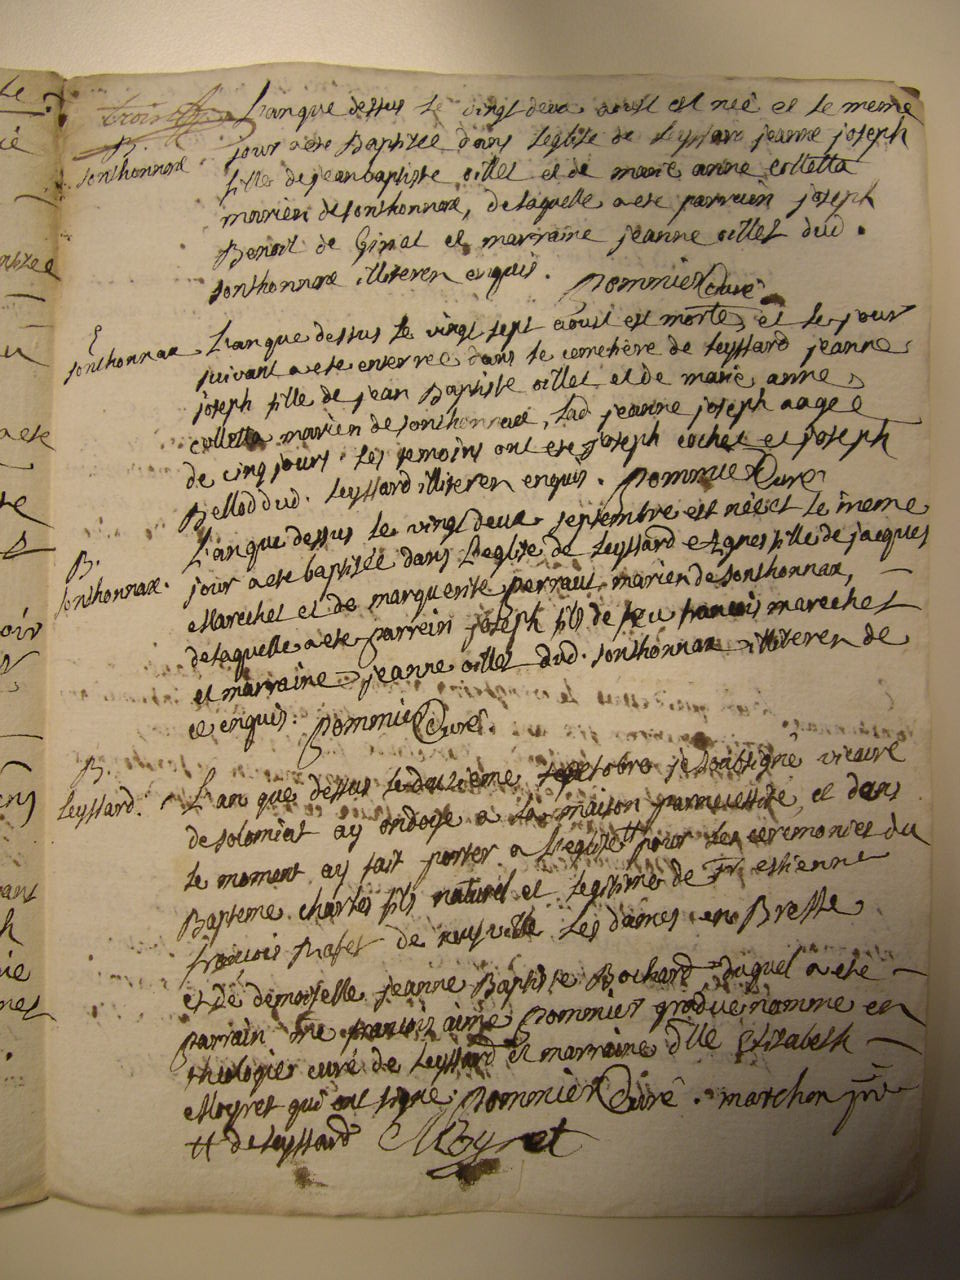 L'an que dessus le vingt deux aoust est née et le meme
B.
sonthonnax
jour a ete Baptisée dans l'eglise de leyssard jeanne joseph
fille de jean baptiste oillet et de marie anne colletta
mariez de sonthonnax, de laquelle a ete parrain joseph
Benoit de Ginat et marraine jeanne oillet dud.
sonthonnax illiterez enquis. Pommier Curé
sonthonnax
L'an que dessus le vingt sept aoust est morte, et le jour
suivant a ete enterrée dans le cemetière de leyssard jeanne
joseph fille de jean Baptiste oillet et de marie anne
colletta mariez de sonthonnax, lad jeanne joseph aagee
de cinq jours. les temoins ont ete joseph cochet et joseph
Bellod dud. leyssard illiterez enquis. Pommier Curé
B.
sonthonnax.
L'an que dessus le vingt deux septembre est née et le meme
jour a ete baptisée dans l'eglise de leyssard Agnes fille de jacques
Marechet et de marguerite perraut mariez de sonthonnax,
de laquelle a ete parrein joseph fils de feu francois marechet
et marraine jeanne oillet dud. sonthonnax illiterez de
ce enquis. Pommier Curé.
B.
Leyssard.
L'an que dessus le douzieme octobre je soubsigné vicaire
de solomiat ay ondoyé a la maison par necessité, et dans
le moment ay fait porter a l'eglise ++ pour les ceremonies du
Bapteme charles fils naturel et legitime de Sr estienne
francois de neufville les dames en Bresse
et de demoiselle jeanne Baptiste Bochard duquel a ete
parrain me francois aimé Pommier gradue nomme en
theologie curé de leyssard et marraine dlle Elizabeth
Moyret qui ont signé. Pommier Curé. marchon
++ de leyssard Moyret